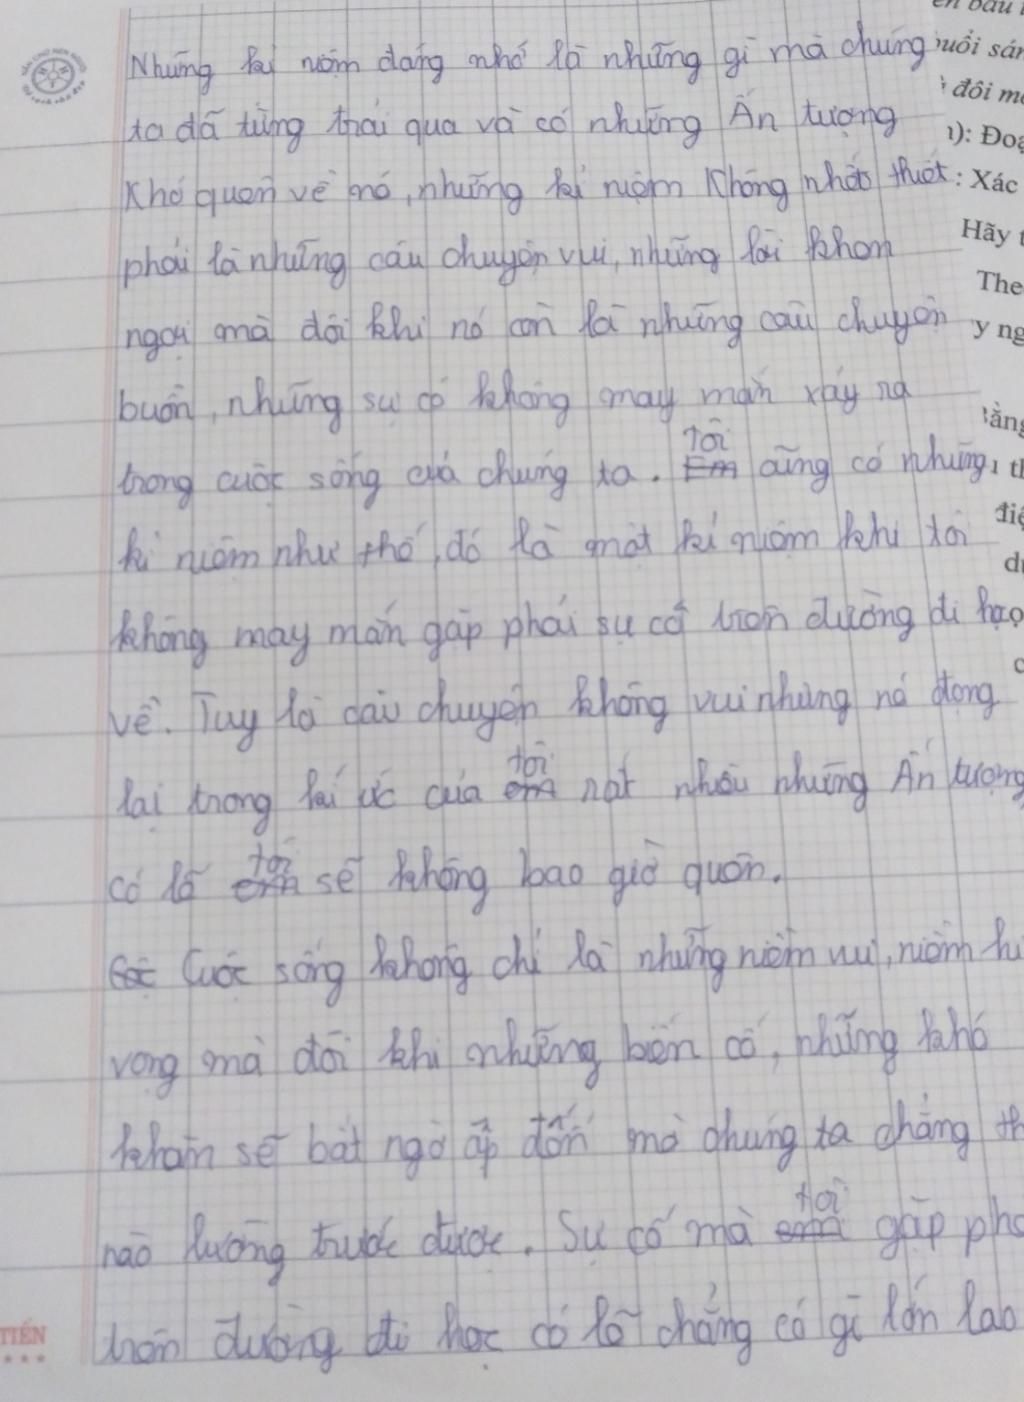 Những kỉ niệm đáng nhớ là những gì mà chúng
ta đã từng trải qua và có những Ấn tượng
Khó quên về nó, những kỉ niệm Không nhất thiết
phải là những câu chuyện vui, những lời khen
ngợi mà đôi khi nó còn là những câu chuyện
buồn, những sự cố không may mắn xảy ra
trong cuộc sống của chúng ta. Tôi cũng có những
kỉ niệm như thế, đó là một kỉ niệm khi tôi
không may mắn gặp phải sự cố trên đường đi học
về. Tuy là câu chuyện không vui nhưng nó đọng
lại trong kí ức của tôi rất nhiều những Ấn tượng
có lẽ tôi sẽ không bao giờ quên.
Cuộc sống không chỉ là những niềm vui, niềm hi
vọng mà đôi khi những biến cố, những khó
khăn sẽ bất ngờ ập đến mà chúng ta chẳng th
nào lường trước được. Sự cố mà tôi gặp phả
trên đường đi học có lẽ chẳng có gì lớn lao
uổi sán
đôi m
): Đoạ
: Xác
Hãy t
The
y ng
điệ
TIẾN